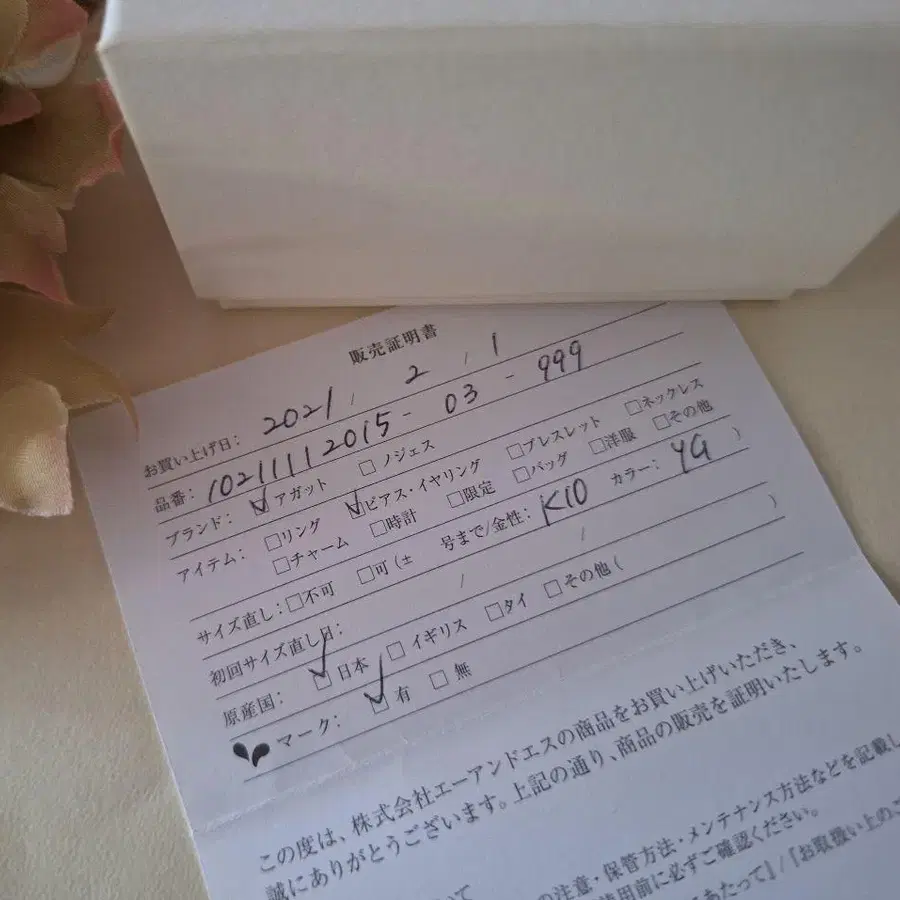 販売証明書
お買い上げ日: 2021 / 2 / 1
品番: 10211112015 - 03 - 999
ブランド: ☑アガット □ノジェス
アイテム: □リング ☑ピアス・イヤリング □ブレスレット □ネックレス
□チャーム □時計 □限定 □バッグ □洋服 □その他
サイズ直し: □不可 □可(± 号まで/金性: K10 カラー: YG )
初回サイズ直し日: / /
原産国: ☑日本 □イギリス □タイ □その他( )
マーク: ☑有 □無
この度は、株式会社エーアンドエスの商品をお買い上げいただき、
誠にありがとうございます。上記の通り、商品の販売を証明いたします。
の注意・保管方法・メンテナンス方法などを記載し
使用前に必ずご確認ください。
てあたって』/『お取扱い上のご